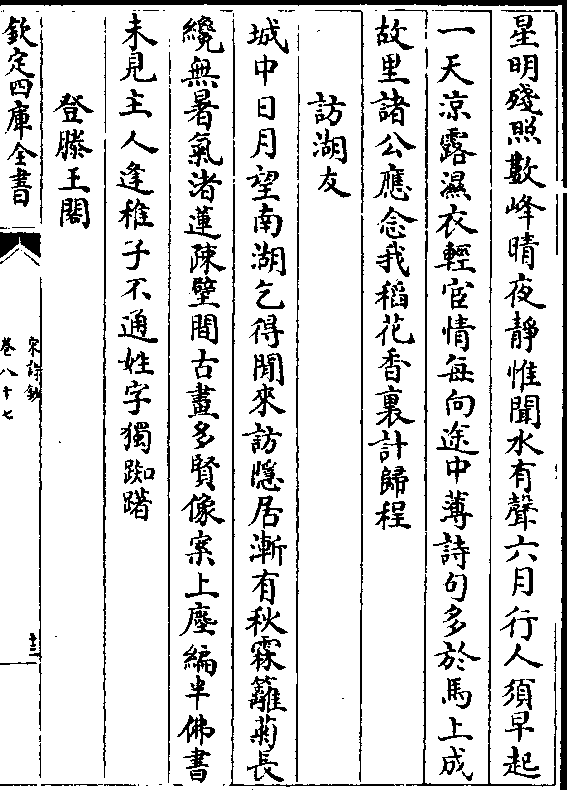 星明殘照數峰晴夜靜惟聞水有聲六月行人須早起
一天涼露濕衣輕宦情每向途中薄詩句多於馬上成
故里諸公應念我稻花香裏計歸程
訪湖友
城中日月望南湖乞得閒來訪隱居漸有秋霖籬菊長
纔無暑氣渚蓮疎壁間古畫多賢像案上塵編半佛書
未見主人逢稚子不通姓字獨踟躇
登滕王閣
欽定四庫全書
宋詩鈔
卷八十七
十三